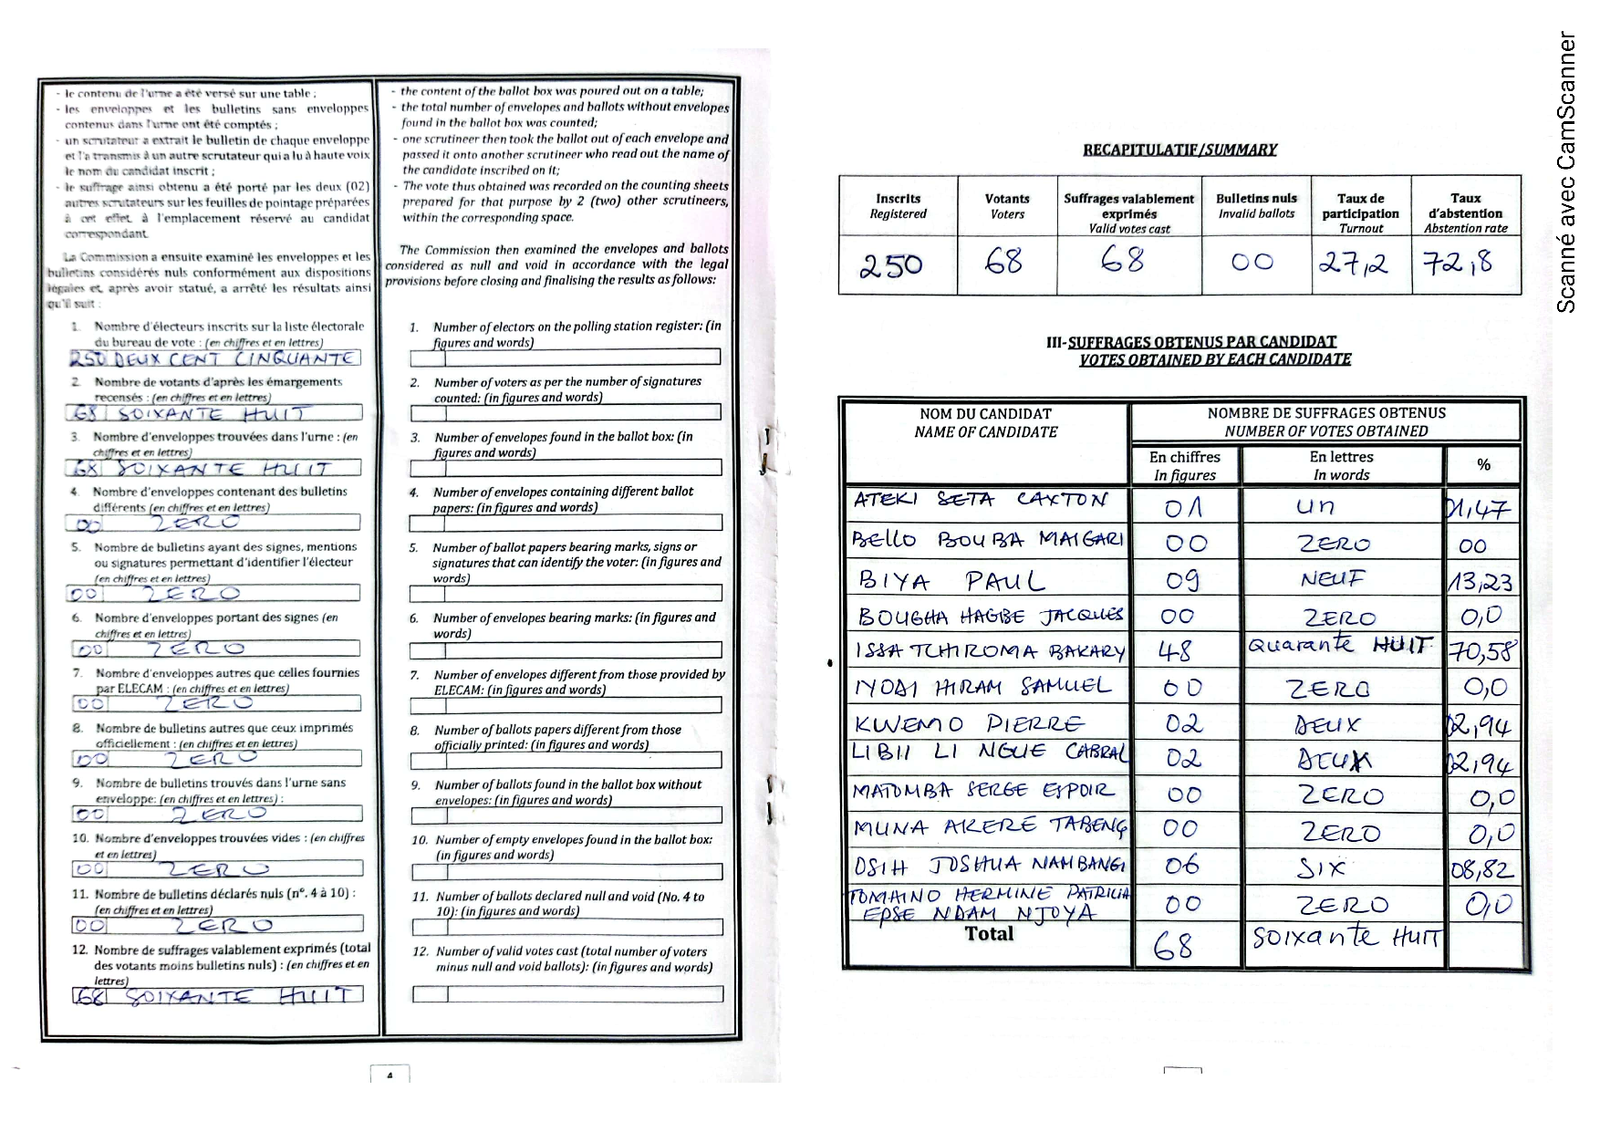 - le contenu de l'urne a été versé sur une table ;
- les enveloppes et les bulletins sans enveloppes
contenus dans l'urne ont été comptés ;
- un scrutateur a extrait le bulletin de chaque enveloppe
et l'a transmis à un autre scrutateur qui a lu à haute voix
le nom du candidat inscrit ;
- le suffrage ainsi obtenu a été porté par les deux (02)
autres scrutateurs sur les feuilles de pointage préparées
à cet effet, à l'emplacement réservé au candidat
correspondant.
La Commission a ensuite examiné les enveloppes et les
bulletins considérés nuls conformément aux dispositions
légales et, après avoir statué, a arrêté les résultats ainsi
qu'il suit :
1. Nombre d'électeurs inscrits sur la liste électorale
du bureau de vote : (en chiffres et en lettres)
250 DEUX CENT CINQUANTE
2. Nombre de votants d'après les émargements
recensés : (en chiffres et en lettres)
68 SOIXANTE HUIT
3. Nombre d'enveloppes trouvées dans l'urne : (en
chiffres et en lettres)
68 SOIXANTE HUIT
4. Nombre d'enveloppes contenant des bulletins
différents (en chiffres et en lettres)
00 ZERO
5. Nombre de bulletins ayant des signes, mentions
ou signatures permettant d'identifier l'électeur
(en chiffres et en lettres)
00 ZERO
6. Nombre d'enveloppes portant des signes (en
chiffres et en lettres)
00 ZERO
7. Nombre d'enveloppes autres que celles fournies
par ELECAM : (en chiffres et en lettres)
00 ZERO
8. Nombre de bulletins autres que ceux imprimés
officiellement : (en chiffres et en lettres)
00 ZERO
9. Nombre de bulletins trouvés dans l'urne sans
enveloppe: (en chiffres et en lettres) :
00 ZERO
10. Nombre d'enveloppes trouvées vides : (en chiffres
et en lettres)
00 ZERO
11. Nombre de bulletins déclarés nuls (n°. 4 à 10) :
(en chiffres et en lettres)
00 ZERO
12. Nombre de suffrages valablement exprimés (total
des votants moins bulletins nuls) : (en chiffres et en
lettres)
68 SOIXANTE HUIT
- the content of the ballot box was poured out on a table;
- the total number of envelopes and ballots without envelopes
found in the ballot box was counted;
- one scrutineer then took the ballot out of each envelope and
passed it onto another scrutineer who read out the name of
the candidate inscribed on it;
- The vote thus obtained was recorded on the counting sheets
prepared for that purpose by 2 (two) other scrutineers,
within the corresponding space.
The Commission then examined the envelopes and ballots
considered as null and void in accordance with the legal
provisions before closing and finalising the results as follows:
1. Number of electors on the polling station register: (in
figures and words)
2. Number of voters as per the number of signatures
counted: (in figures and words)
3. Number of envelopes found in the ballot box: (in
figures and words)
4. Number of envelopes containing different ballot
papers: (in figures and words)
5. Number of ballot papers bearing marks, signs or
signatures that can identify the voter: (in figures and
words)
6. Number of envelopes bearing marks: (in figures and
words)
7. Number of envelopes different from those provided by
ELECAM: (in figures and words)
8. Number of ballots papers different from those
officially printed: (in figures and words)
9. Number of ballots found in the ballot box without
envelopes: (in figures and words)
10. Number of empty envelopes found in the ballot box:
(in figures and words)
11. Number of ballots declared null and void (No. 4 to
10): (in figures and words)
12. Number of valid votes cast (total number of voters
minus null and void ballots): (in figures and words)
4
RECAPITULATIF/SUMMARY
Inscrits Registered
Votants Voters
Suffrages valablement exprimés Valid votes cast
Bulletins nuls Invalid ballots
Taux de participation Turnout
Taux d'abstention Abstention rate
250 68 68 00 27,2 72,8
III-SUFFRAGES OBTENUS PAR CANDIDAT
VOTES OBTAINED BY EACH CANDIDATE
NOM DU CANDIDAT
NAME OF CANDIDATE
NOMBRE DE SUFFRAGES OBTENUS
NUMBER OF VOTES OBTAINED
En chiffres
In figures
En lettres
In words
%
ATEKI SETA CAXTON 01 un 01,47
BELLO BOUBA MAIGARI 00 ZERO 00
BIYA PAUL 09 NEUF 13,23
BOUGHA HAGBE JACQUES 00 ZERO 0,0
ISSA TCHIROMA BAKARY 48 Quarante HUIT 70,58
IYODI HIRAM SAMUEL 00 ZERO 0,0
KWEMO PIERRE 02 DEUX 02,94
LIBII LI NGUE CABRAL 02 DEUX 02,94
MATOMBA SERGE ESPOIR 00 ZERO 0,0
MUNA AKERE TABENG 00 ZERO 0,0
OSIH JOSHUA NAMBANGI 06 SIX 08,82
TOMAINO HERMINE PATRICIA
EPSE NDAM NJOYA 00 ZERO 0,0
Total 68 SOIXANTE HUIT
Scanné avec CamScanner